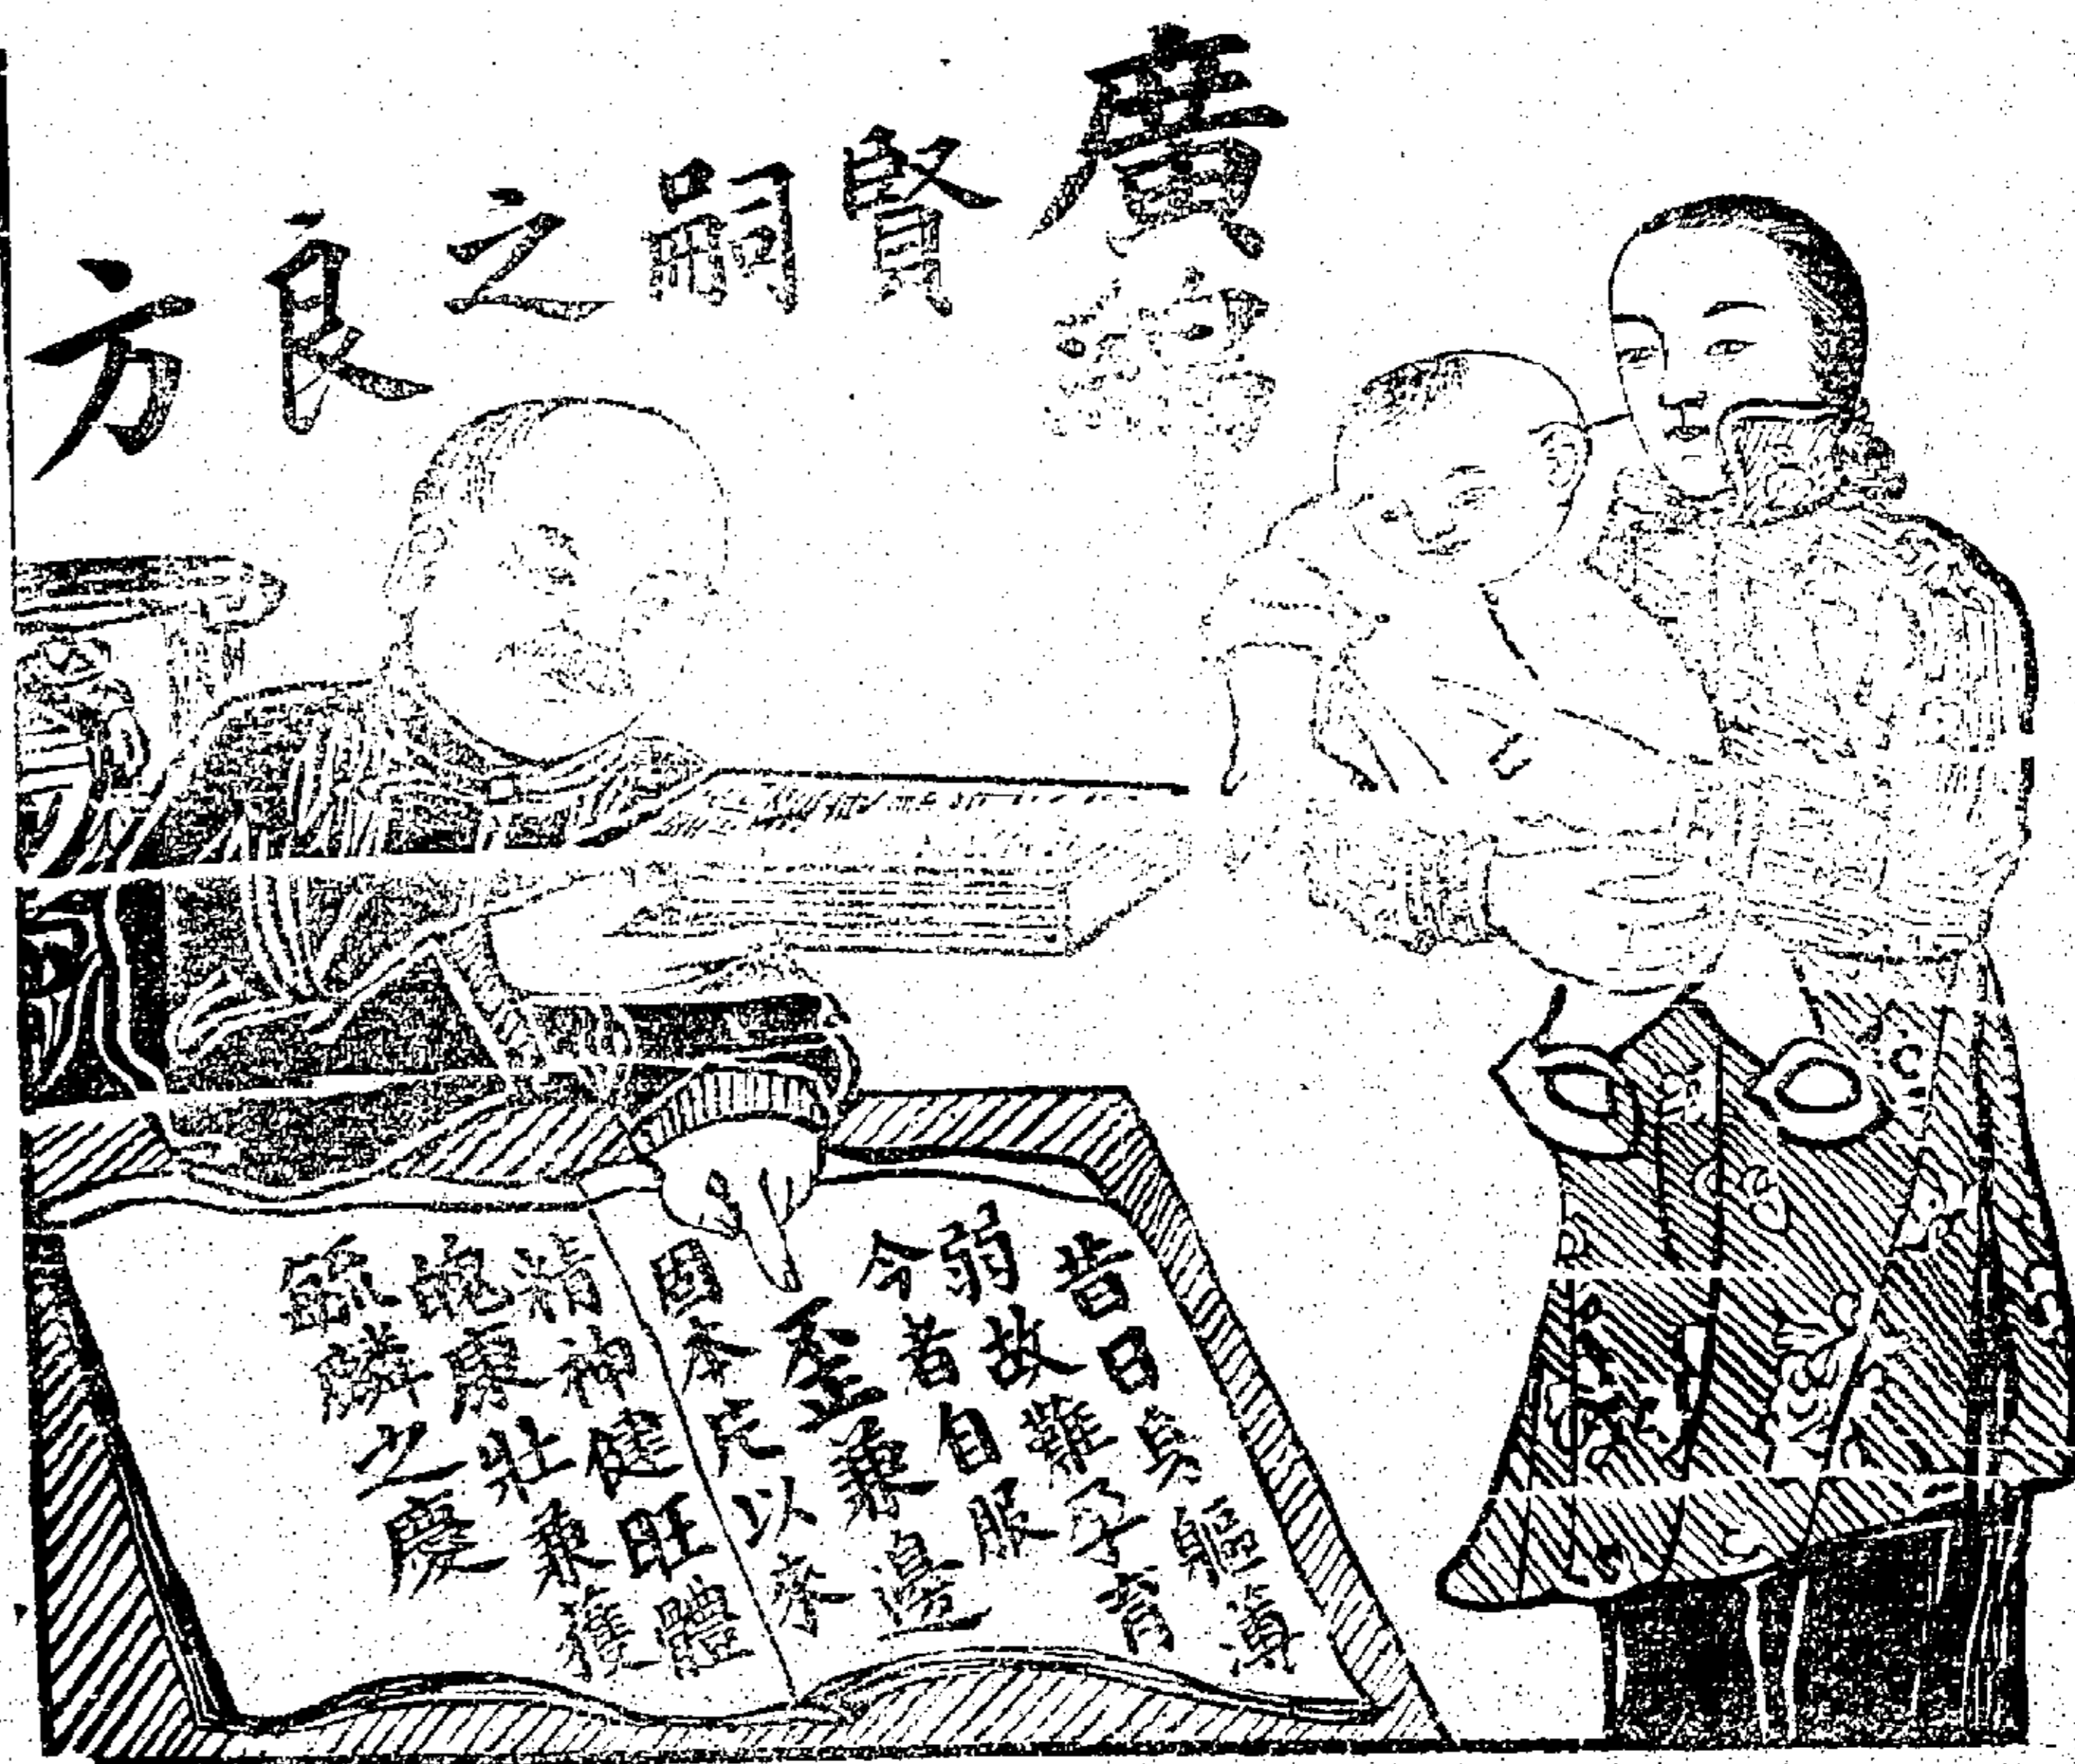 廣賢嗣之良方
昔日軀薄
弱故難孕育
今者自服
至兼邊
固本以來
精神健旺體
魄康壯兼獲
毓麟之慶